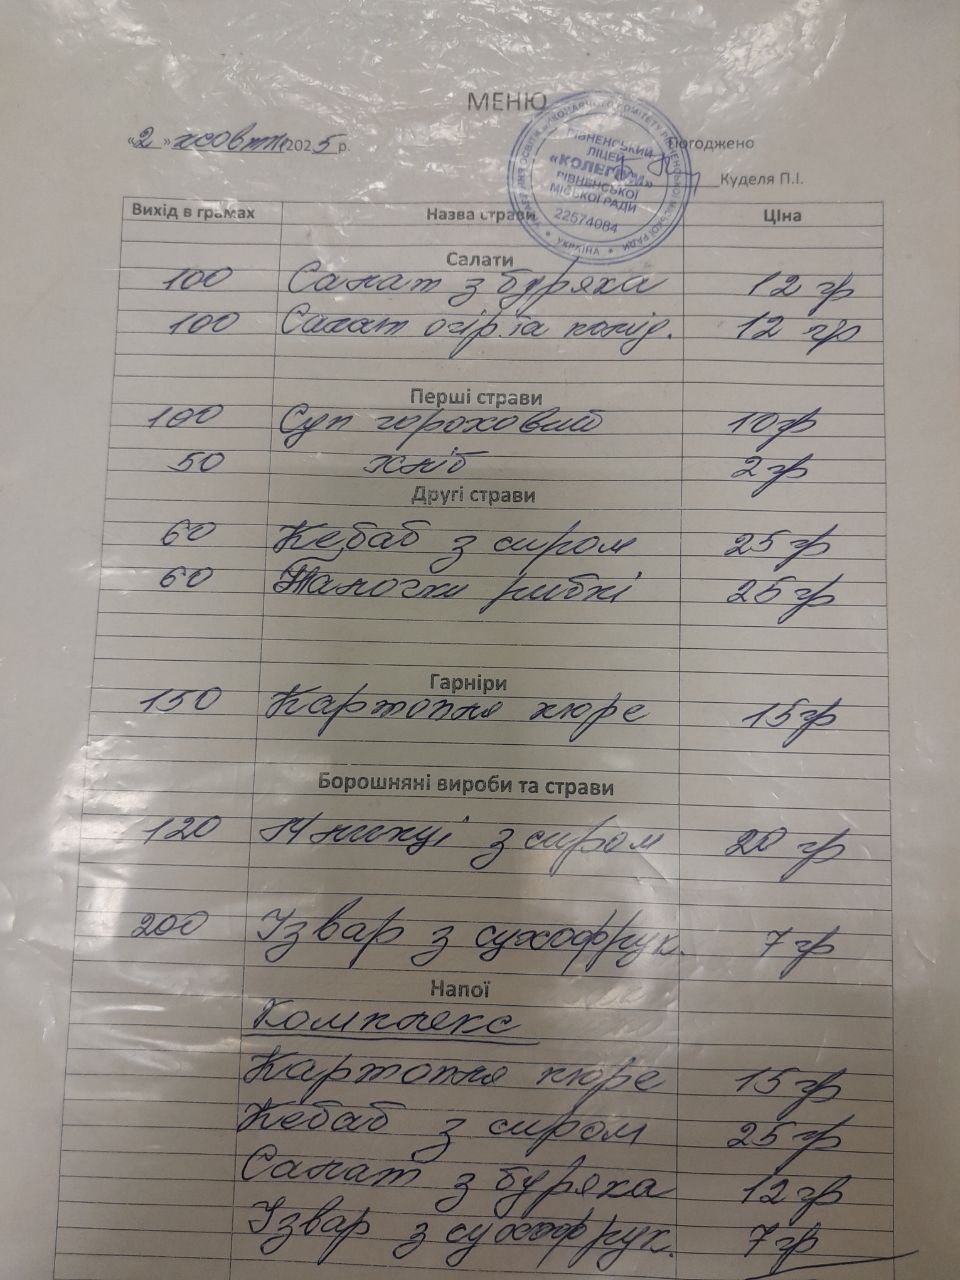 МЕНЮ
«2» жовтня 2025 р. Погоджено
Куделя П.І.
УПРАВЛІННЯ ОСВІТИ ВИКОНАВЧОГО КОМІТЕТУ РІВНЕНСЬКОЇ МІСЬКОЇ РАДИ
РІВНЕНСЬКИЙ
ЛІЦЕЙ
«КОЛЕГІУМ»
РІВНЕНСЬКОЇ
МІСЬКОЇ РАДИ
22574084
УКРАЇНА
Вихід в грамах Назва страви Ціна
Салати
100 Салат з буряка 12 гр
100 Салат огір. та помід. 12 гр
Перші страви
100 Суп гороховий 10 гр
50 хліб 2 гр
Другі страви
60 Кебаб з сиром 25 гр
60 Палочки рибні 25 гр
Гарніри
150 Картопля пюре 15 гр
Борошняні вироби та страви
120 Млинці з сиром 20 гр
200 Узвар з сухофрук. 7 гр
Напої
Комплекс
Картопля пюре 15 гр
Кебаб з сиром 25 гр
Салат з буряка 12 гр
Узвар з сухофрук. 7 гр